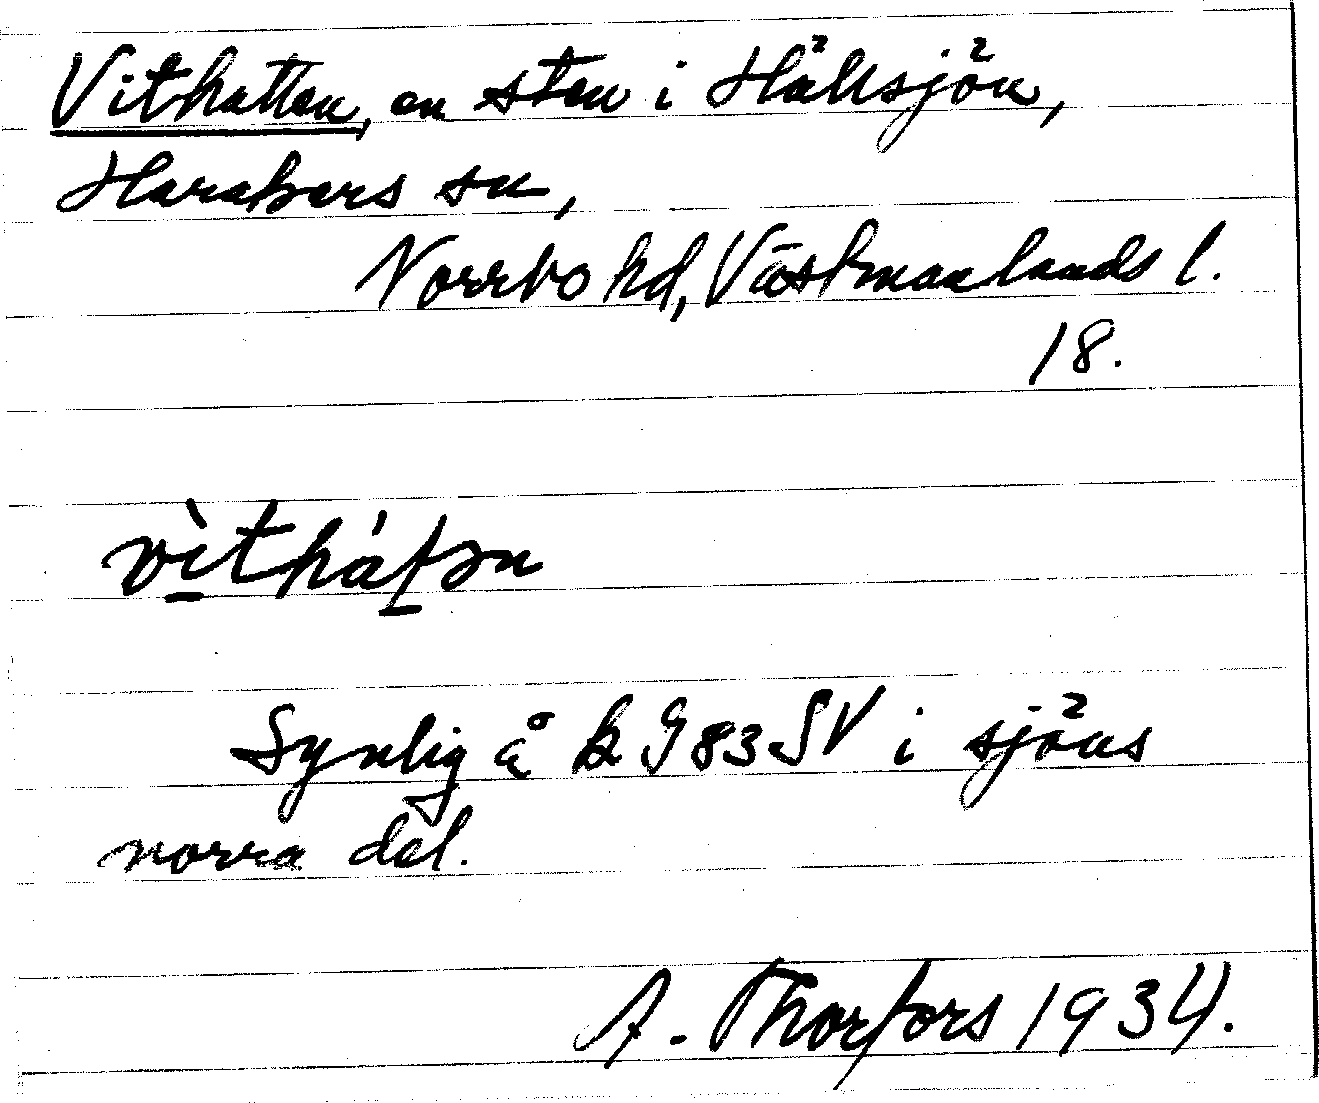 Vithatten, en sten i Hällsjön,
Harakers sn,
Norrbo hd, Västmanlands l.
18.
vìthátən
Synlig å k 983 SV i sjöns
norra del.
A. Thorfors 1934.